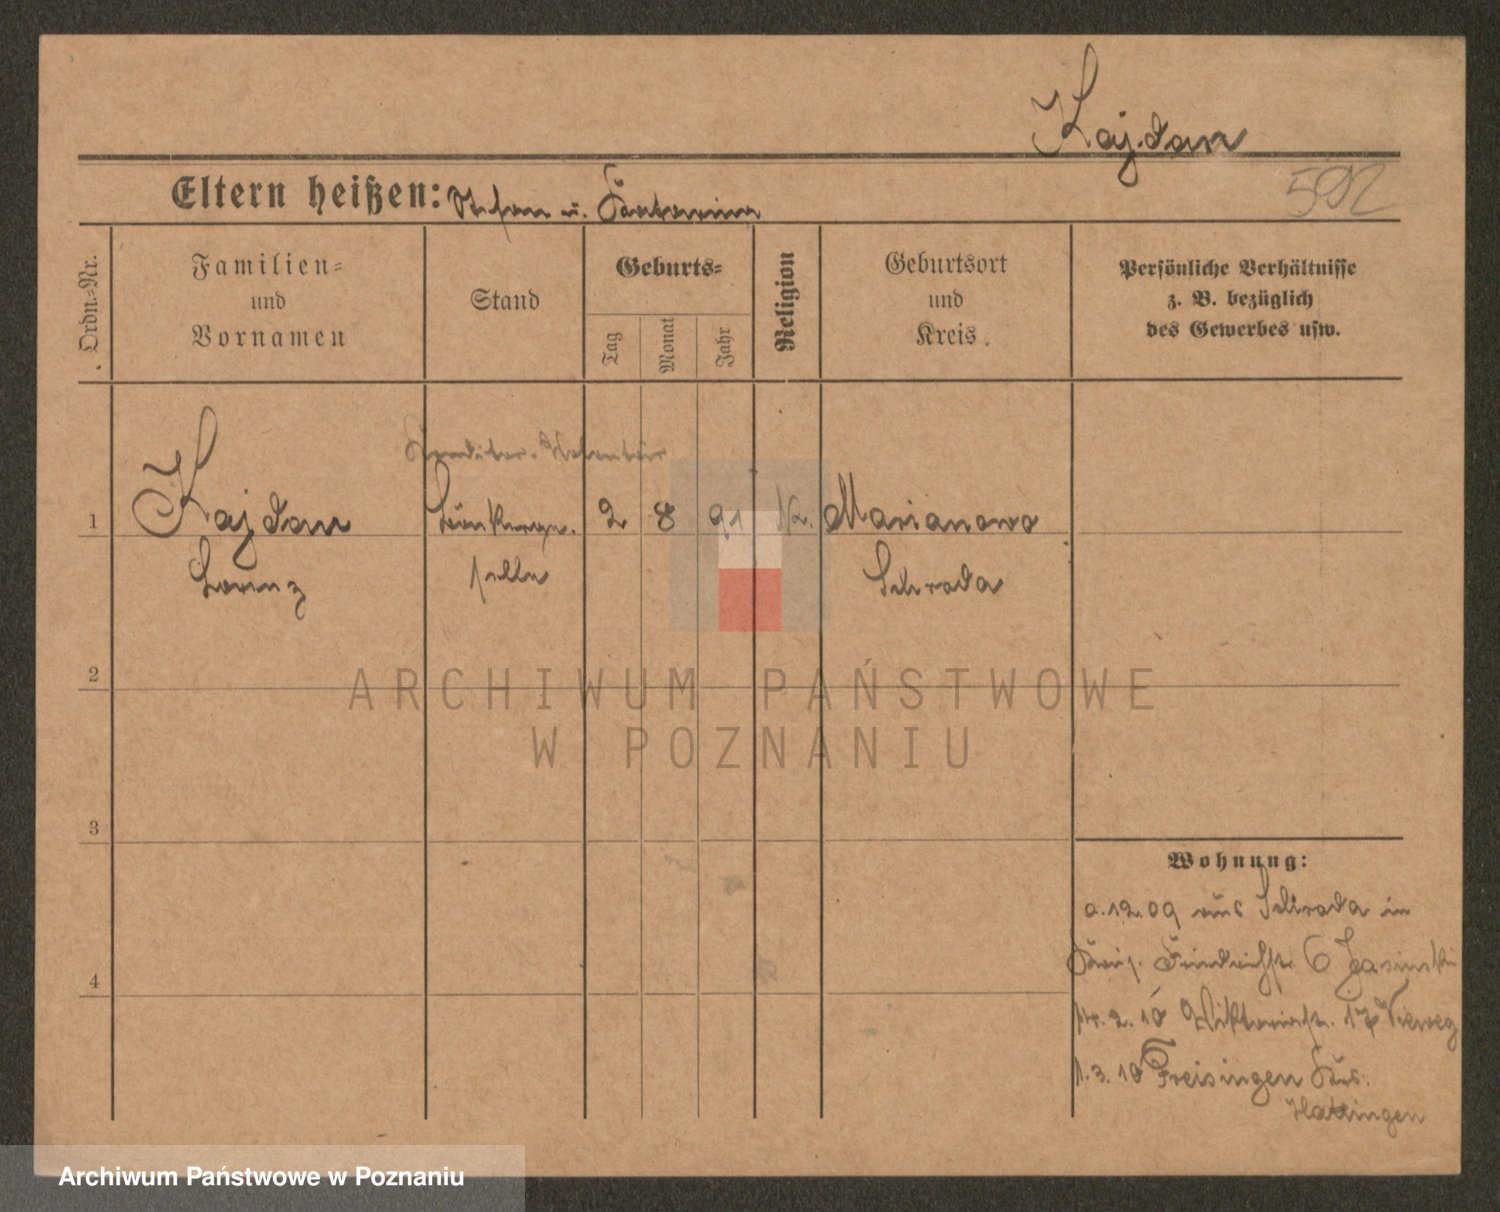 Kajdan
592
Eltern heißen: Stefan u. Katarina
Ordn.-Nr.
Familien-
und
Vornamen
Stand
Geburts-
Tag
Monat
Jahr
Religion
Geburtsort
und
Kreis.
Persönliche Verhältnisse
z. B. bezüglich
des Gewerbes usw.
Konditor-Volontär
1 Kajdan 2 8 91 K. Marianowo
Lorenz selle Schroda
2
3
4
Wohnung:
12.09 aus Schroda in
Friedrichstr. 6 Jasinski
2. 10 Viktoriastr. 17 Vieweg
1. 3. 10 Freisingen Krs.
Hattingen
ARCHIWUM PAŃSTWOWE
W POZNANIU
Archiwum Państwowe w Poznaniu